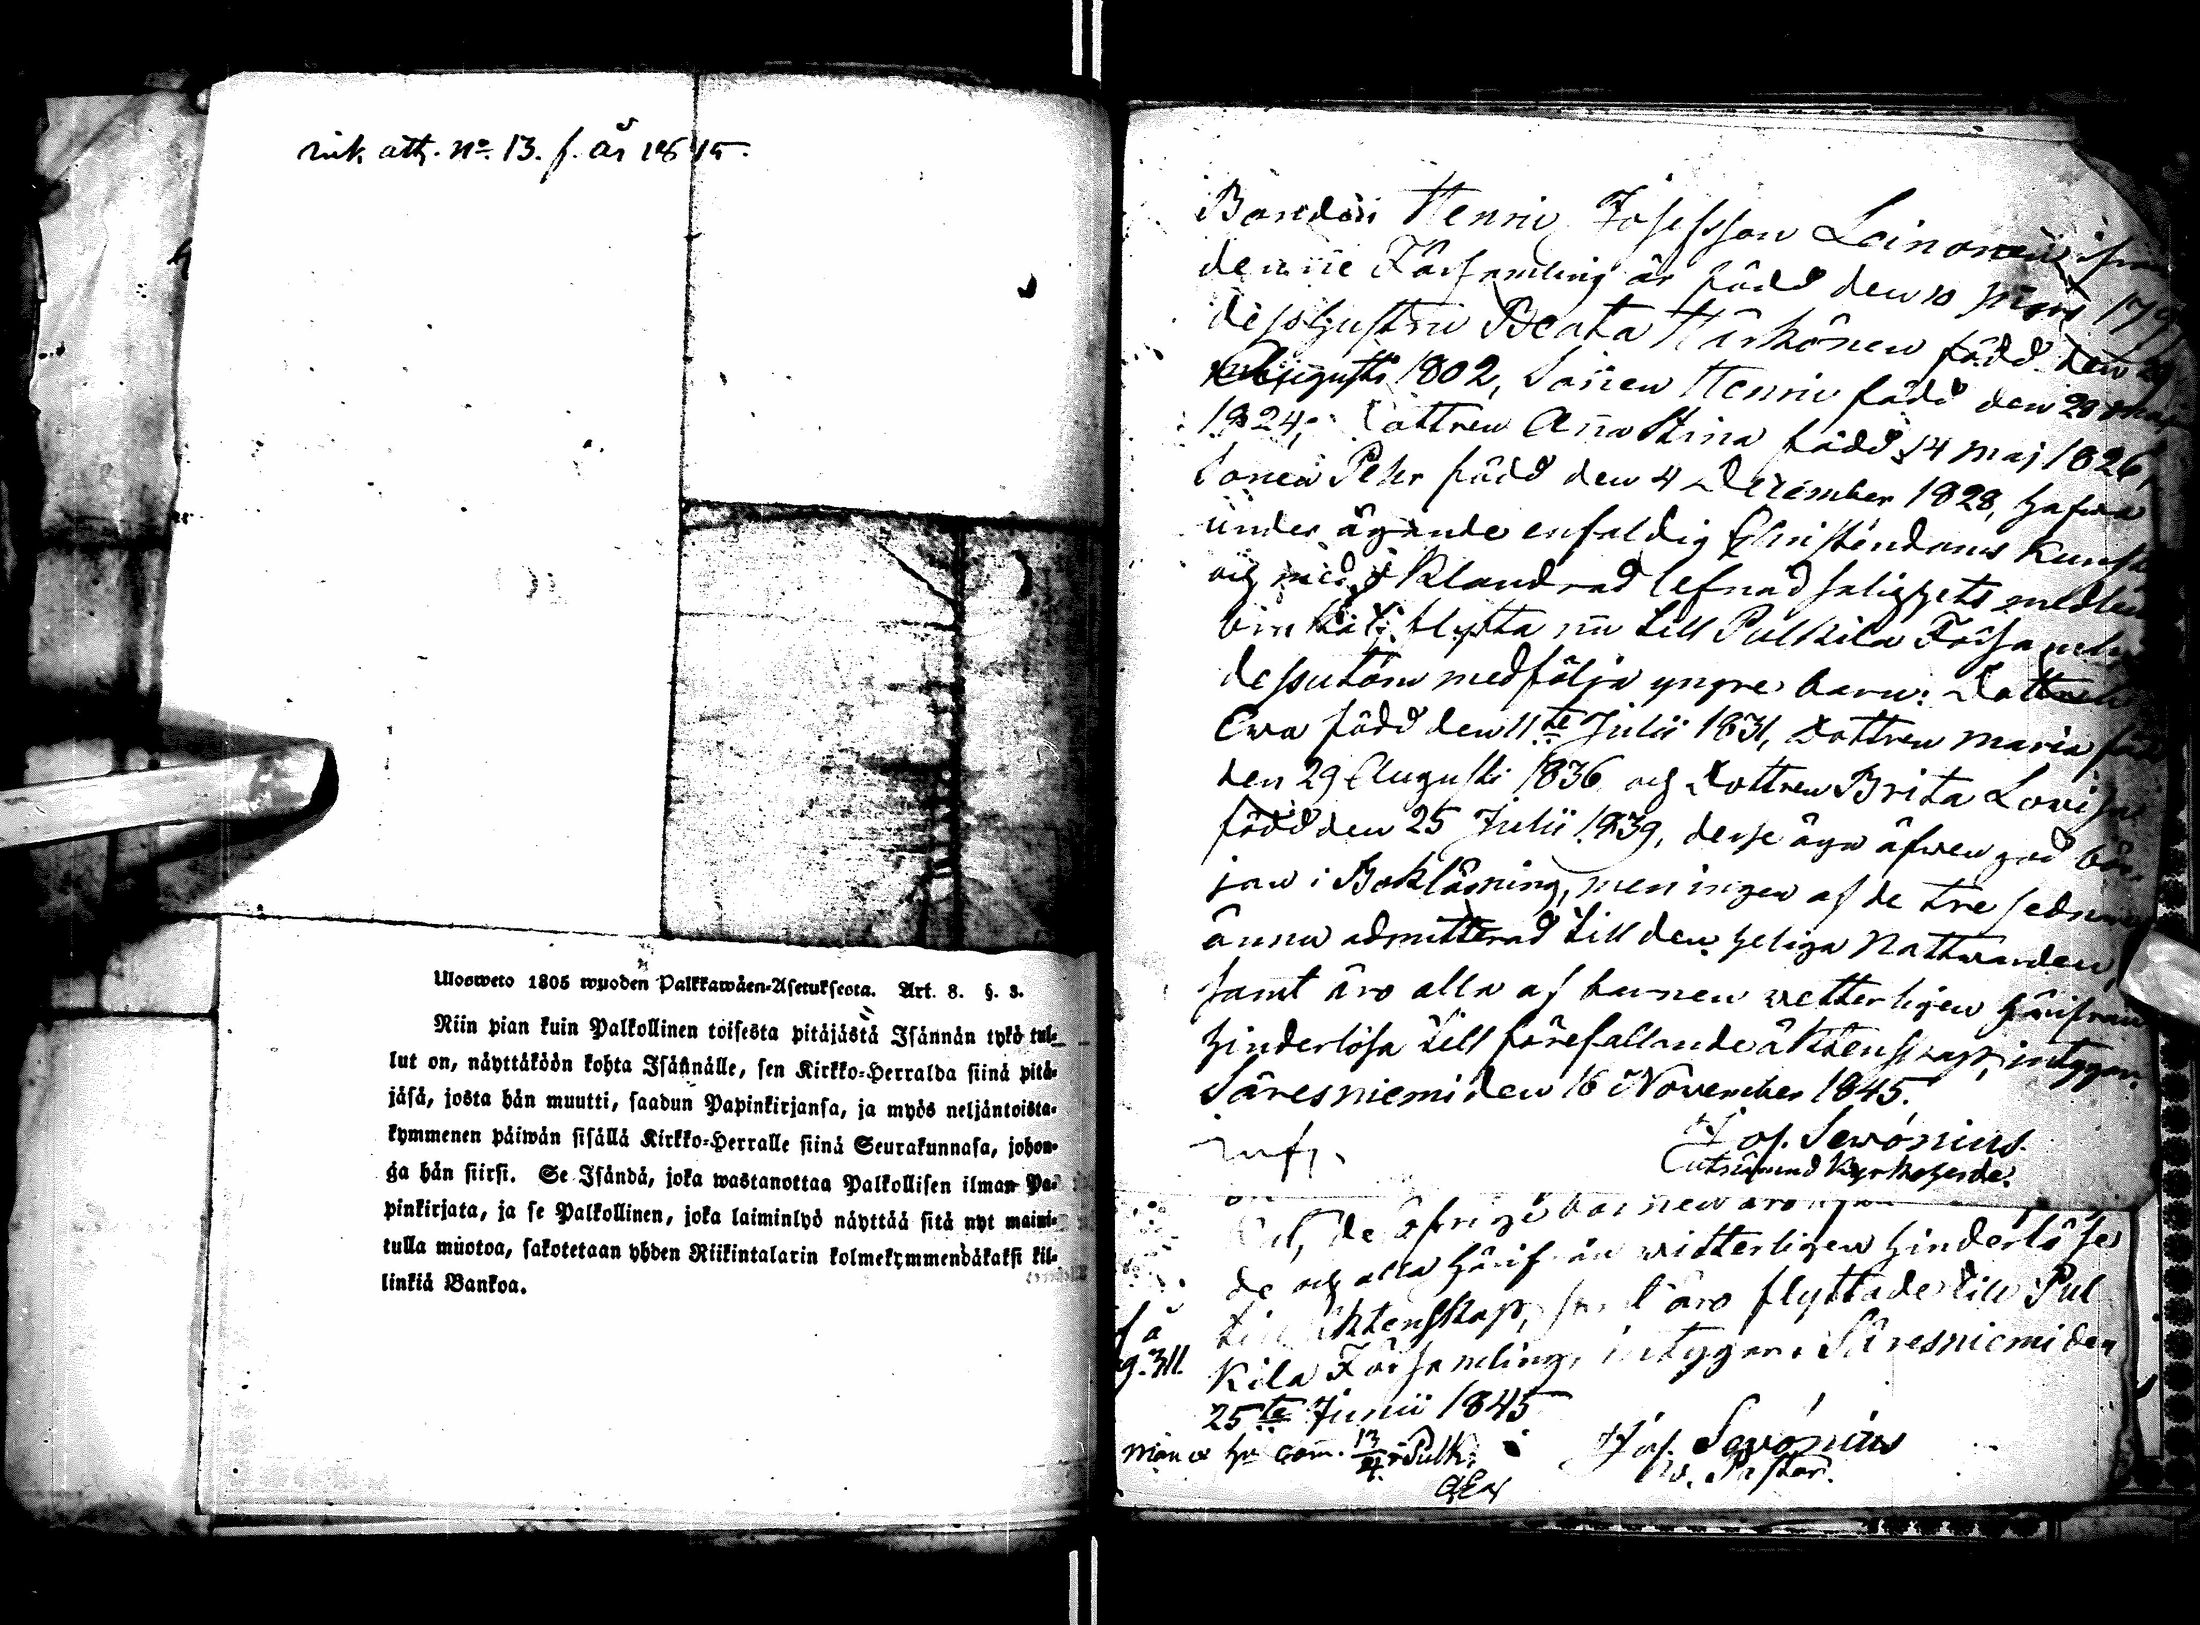 ink att. No. 13. f. år 1845.
Ulosweto 1805 wuoden Palkkawäen-Asetuksesta. Art. 8. §. 3.
Niin pian kuin Palkollinen toisesta pitäjästä Isännän tykö tul-
lut on, näyttäköön kohta Isännälle, sen Kirkko-Herralda siinä pitä-
jäsä, josta hän muutti, saadun Papinkirjansa, ja myös neljäntoista-
kymmenen päiwän sisällä Kirkko-Herralle siinä Seurakunnasa, johon-
ga hän siirsi. Se Isändä, joka wastanottaa Palkollisen ilman Pa-
pinkirjata, ja se Palkollinen, joka laiminlyö näyttää sitä nyt maini-
tulla muotoa, sakotetaan yhden Riikintalarin kolmekymmendäkaksi kil-
linkiä Bankoa.
Bonden Henric Josefsson Leinonen ifrån
denne Församling är född den 10 179
dess hustru Beata Härkönen född den 29
Augusti 1802, Sonen Henric född den 20
1824, Dottren Anna Stina född 14 Maj 1826,
Sonen Pehr född den 4 December 1828, hafwa
under ägande enfaldig Christendoms
och med oklandrad lefnad salighets medlen
flytta nu till Pulkila
dessutom medfölja yngre barn: Dottren
Ewa född den 11te Julii 1831, Dottren Maria född
den 29 Augusti 1836 och Dottren Brita Lovisa
född den 25 Julii 1839, desse äga äfwen god bör-
jan i Bokläsning, men ingen af de tre sednare
ännu admitterad till den heliga Nattwarden,
samt äro alla af barnen wetterligen härifrån
hinderlösa till förefallande äktenskap, intygar.
Säresniemi den 16 November 1845.
Jos. Sewónius.
Kyrkoherde.
de öfrige barnen äro
de och alla härifrån witterligen hinderlöse
till äktenskap, samt äro flyttade till Pul
kila Församling, intygar. Säresniemi den
25te Junii 1845
Jos. Sewónius
w. Pastor.
g. 311.
com. 13/4 i Pulk.